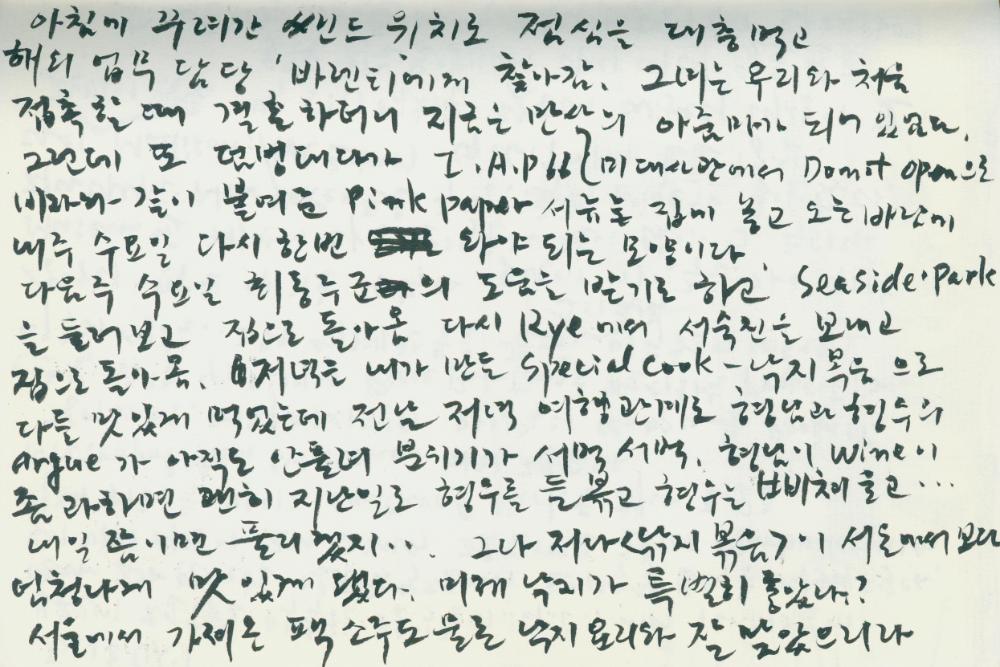 아침에 꾸려간 샌드위치로 점심을 대충먹고
해외 업무 담당 '바렌티'에게 찾아감. 그녀는 우리와 처음
접촉할 때 결혼하더니 지금은 만삭의 아줌마가 되어 있었다.
그런데 또 덤벙대다가 I.A.P66 (미대사관에서 Do not open으로
비라와 같이 붙여준 Pink paper 서류를 집에 놓고 오는바람에
내주 수요일 다시한번 와야 되는 모양이다
다음주 수요일 최동수군의 도움을 받기로 하고 Seaside·Park
을 들러보고 집으로 돌아옴 다시 Rye에서 서숙진을 보내고
집으로 돌아옴. 저녁은 내가 만든 Special cook - 낙지볶음 으로
다들 맛있게 먹었는데 전날 저녁 여행관계로 형님과 형수의
argue가 아직도 안풀려 분위기가 서먹서먹. 형님이 wine이
좀 과하면 괜히 지난일로 형수를 들볶고 형수는 삐쳐 울고...
내일 쯤이면 풀리겠지... 그나 저나 <낚지볶음>이 서울에서 보다
엄청나게 맛있게 됐다. 미제 낙지가 특별히 좋았나?
서울에서 가져온 팩소주도 물론 낙지요리와 잘 맞았으리라